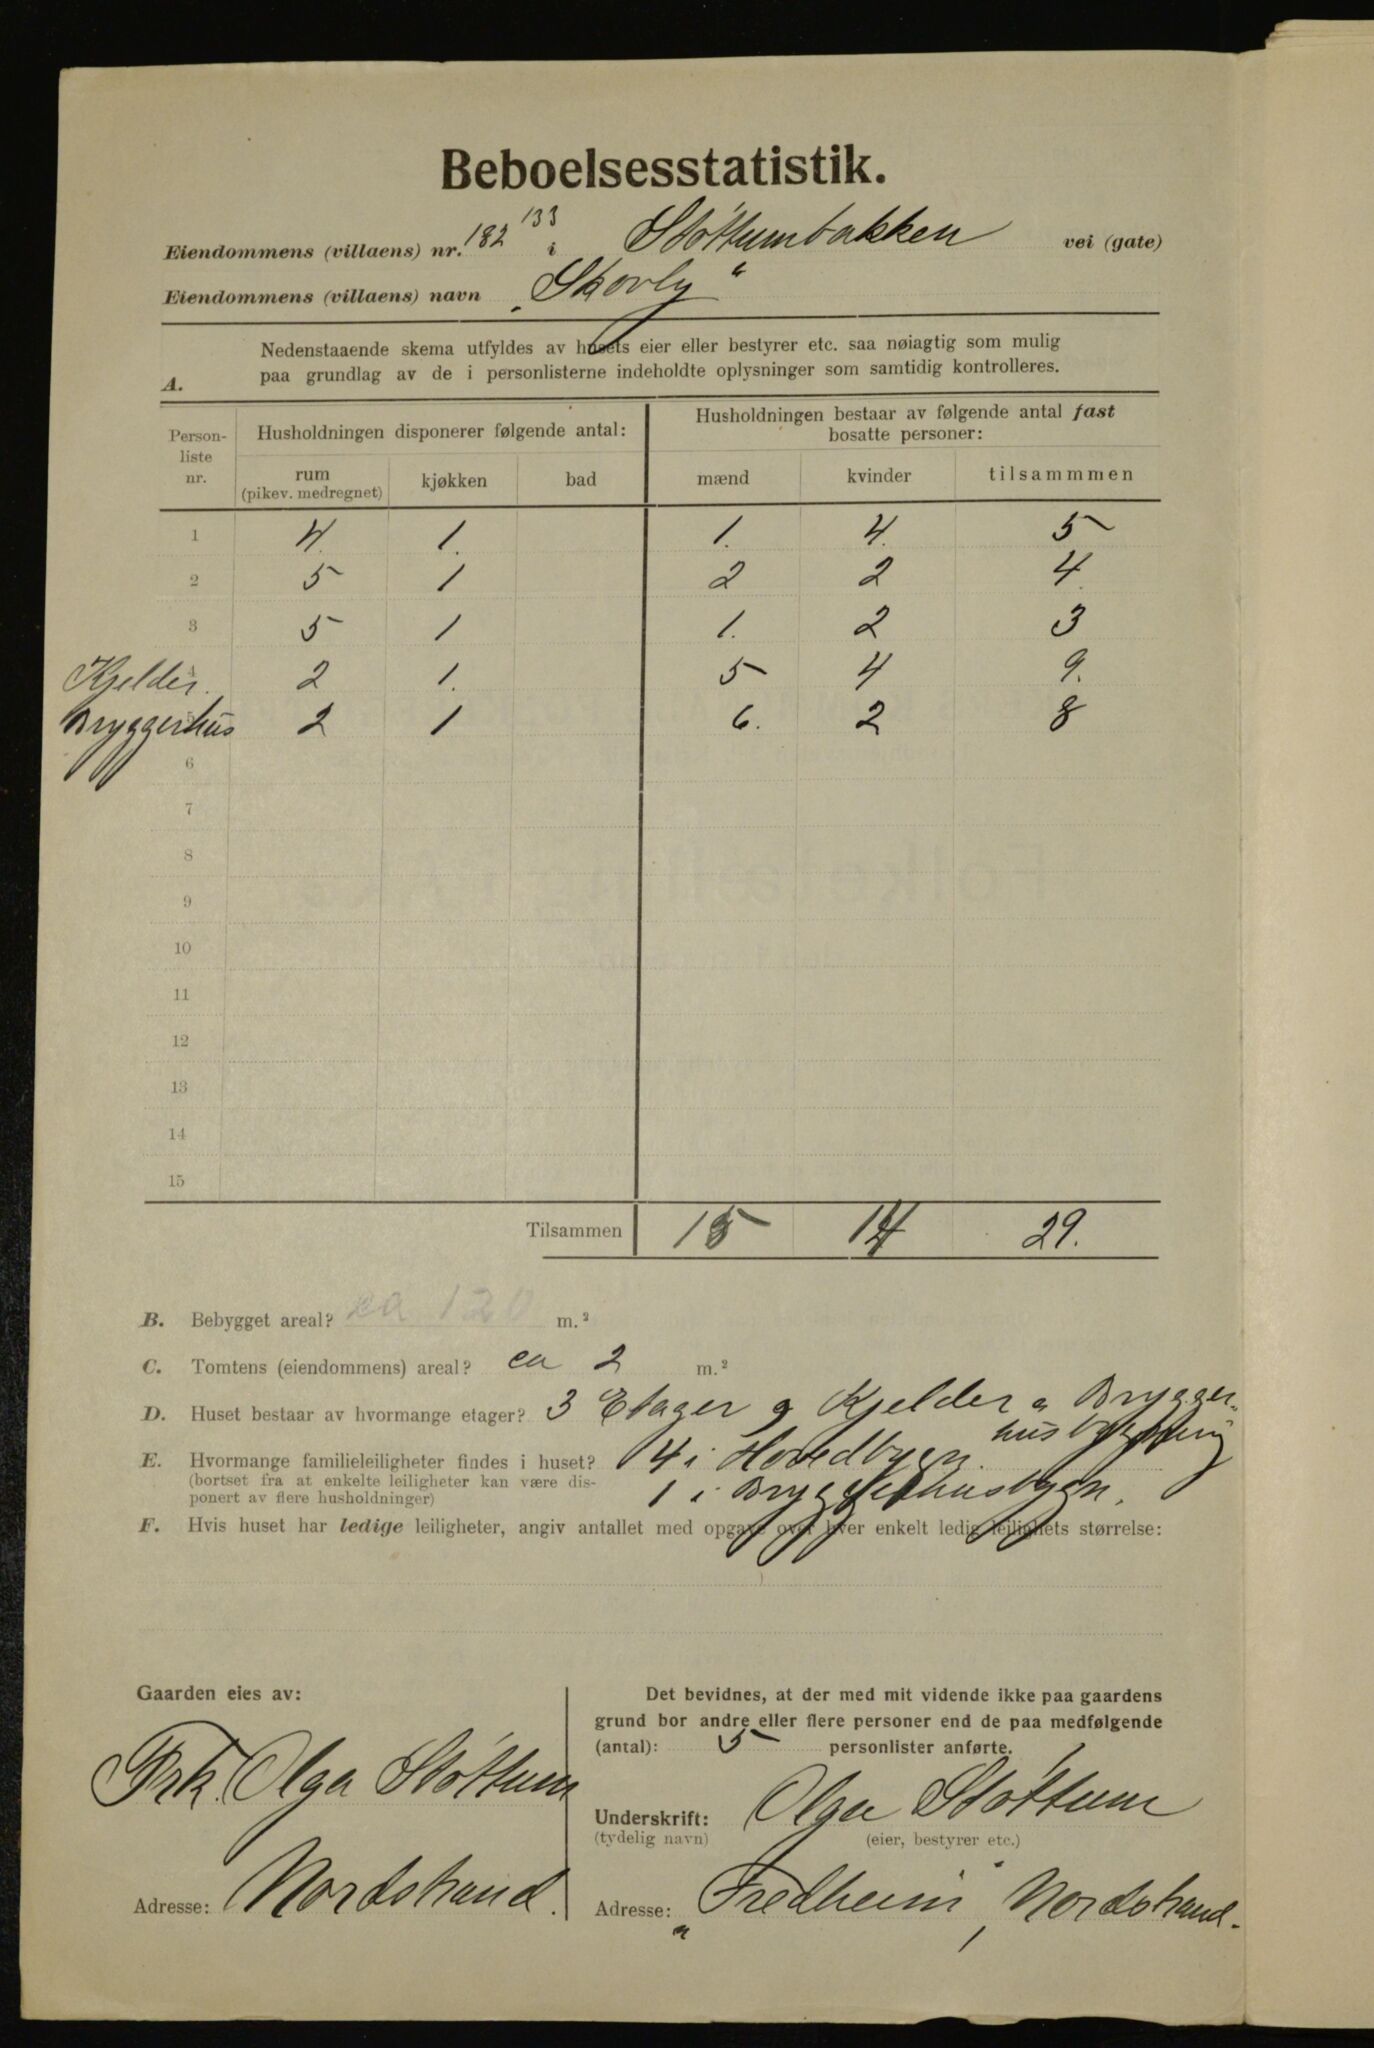 Beboelsesstatistik.
Eiendommens (villaens) nr. 182 133 i Støttumbakken vei (gate)
Eiendommens (villaens) navn „Skovly“
Nedenstaaende skema utfyldes av husets eier eller bestyrer etc. saa nøiagtig som mulig
A. paa grundlag av de i personlisterne indeholdte oplysninger som samtidig kontrolleres.
Person-liste nr. Husholdningen disponerer følgende antal: Husholdningen bestaar av følgende antal fast bosatte personer:
rum (pikev. medregnet) kjøkken bad mænd kvinder tilsammmen
1 4. 1. 1. 4. 5
2 5 1 2 2 4.
3 5 1 1. 2 3
Kjelder. 2 1. 5 4 9.
Bryggerhus 2 1 6. 2 8
6
7
8
9
10
11
12
13
14
15
Tilsammen 15 14 29.
B. Bebygget areal? ca 120 m.²
C. Tomtens (eiendommens) areal? ca 2 m.²
D. Huset bestaar av hvormange etager? 3 Etager og Kjelder og Brygger-
husbygning
E. Hvormange familieleiligheter findes i huset? 4 i Hovedbygn.
(bortset fra at enkelte leiligheter kan være dis-
ponert av flere husholdninger) 1 i Bryggerhusbygn.
F. Hvis huset har ledige leiligheter, angiv antallet med opgave over hver enkelt ledig leilighets størrelse:
Gaarden eies av:
Frk. Olga Støttum
Adresse: Nordstrand.
Det bevidnes, at der med mit vidende ikke paa gaardens
grund bor andre eller flere personer end de paa medfølgende
(antal): 5 personlister anførte.
Underskrift: Olga Støttum
(tydelig navn) (eier, bestyrer etc.)
Adresse: „Fredheim“, Nordstrand.